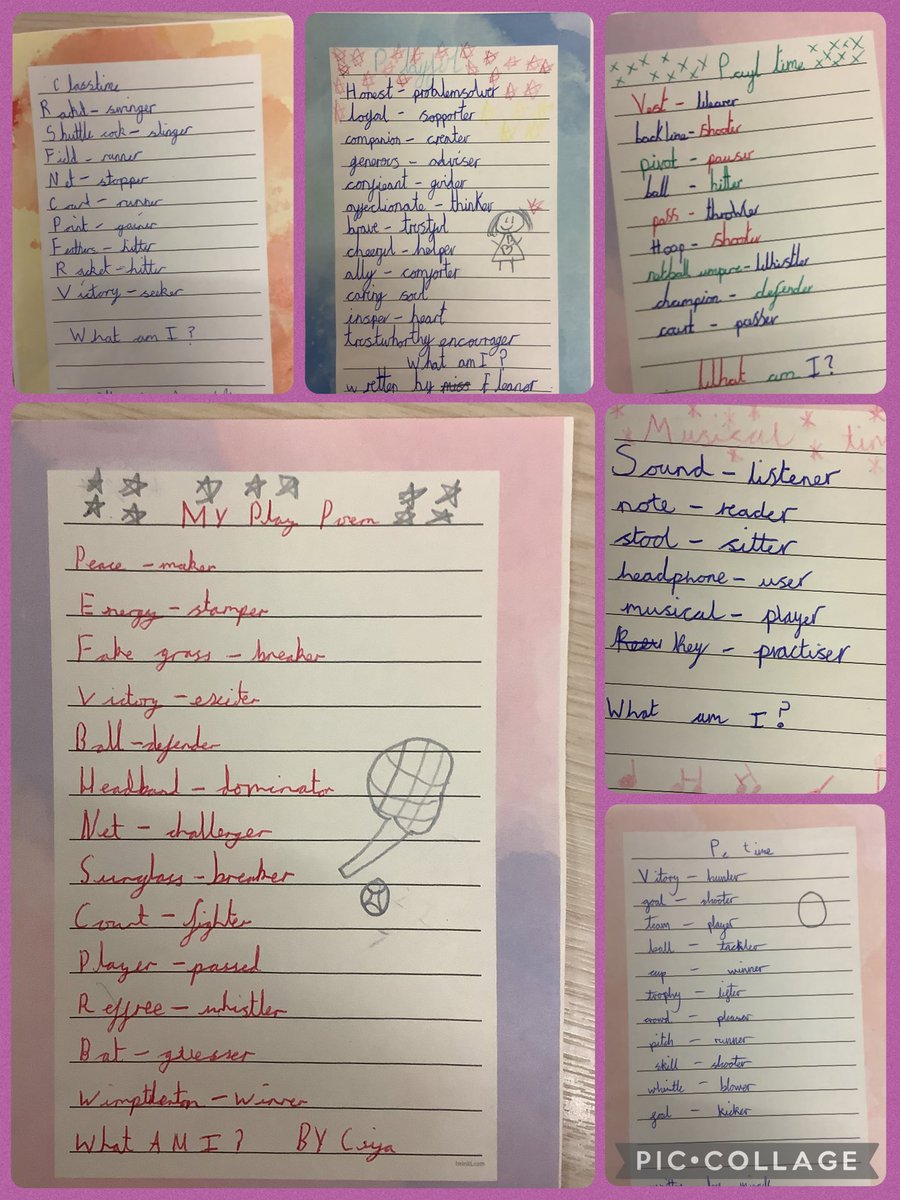 Classtime
Rakd - swinger
Shuttle cock - slinger
Field - runner
Net - stopper
Court - runner
Point - gainer
Feathers - hitter
Racket - hitter
Victory - seeker
What am I?
Honest - problemsolver
loyal - sopporter
companion - creater
generous - adviser
confident - guider
affectionate - thinker
brave - trustful
cheerful - helper
ally - comforter
caring soul
insper - heart
trustworthy encourager
What am I?
written by miss Eleanor
Payt time
Vest - Wearer
back line - shooter
pivot - pauser
ball - hitter
pass - throwler
Hoop - shooter
netball umpire - Whistler
champion - defender
court - passer
What am I?
My Play Poem
Peace - maker
Energy - stamper
Fake grass - breaker
Victory - exciter
Ball - defender
Headband - dominator
Net - challenger
Sunglass - breaker
Court - fighter
Player - passed
Reffree - whistler
Bat - guesser
Wimpthenton - winner
What AM I? BY Ciya
twinkl.com
Musical tim
Sound - listener
note - reader
stool - sitter
headphone - user
musical - player
Key - practiser
What am I?
Pe time
Vitory - hunter
goal - shooter
team - player
ball - tackler
cup - winner
trophy - lifter
crowd - pleaser
pitch - runner
skill - shooter
whistle - blower
goal - kicker
PIC•COLLAGE